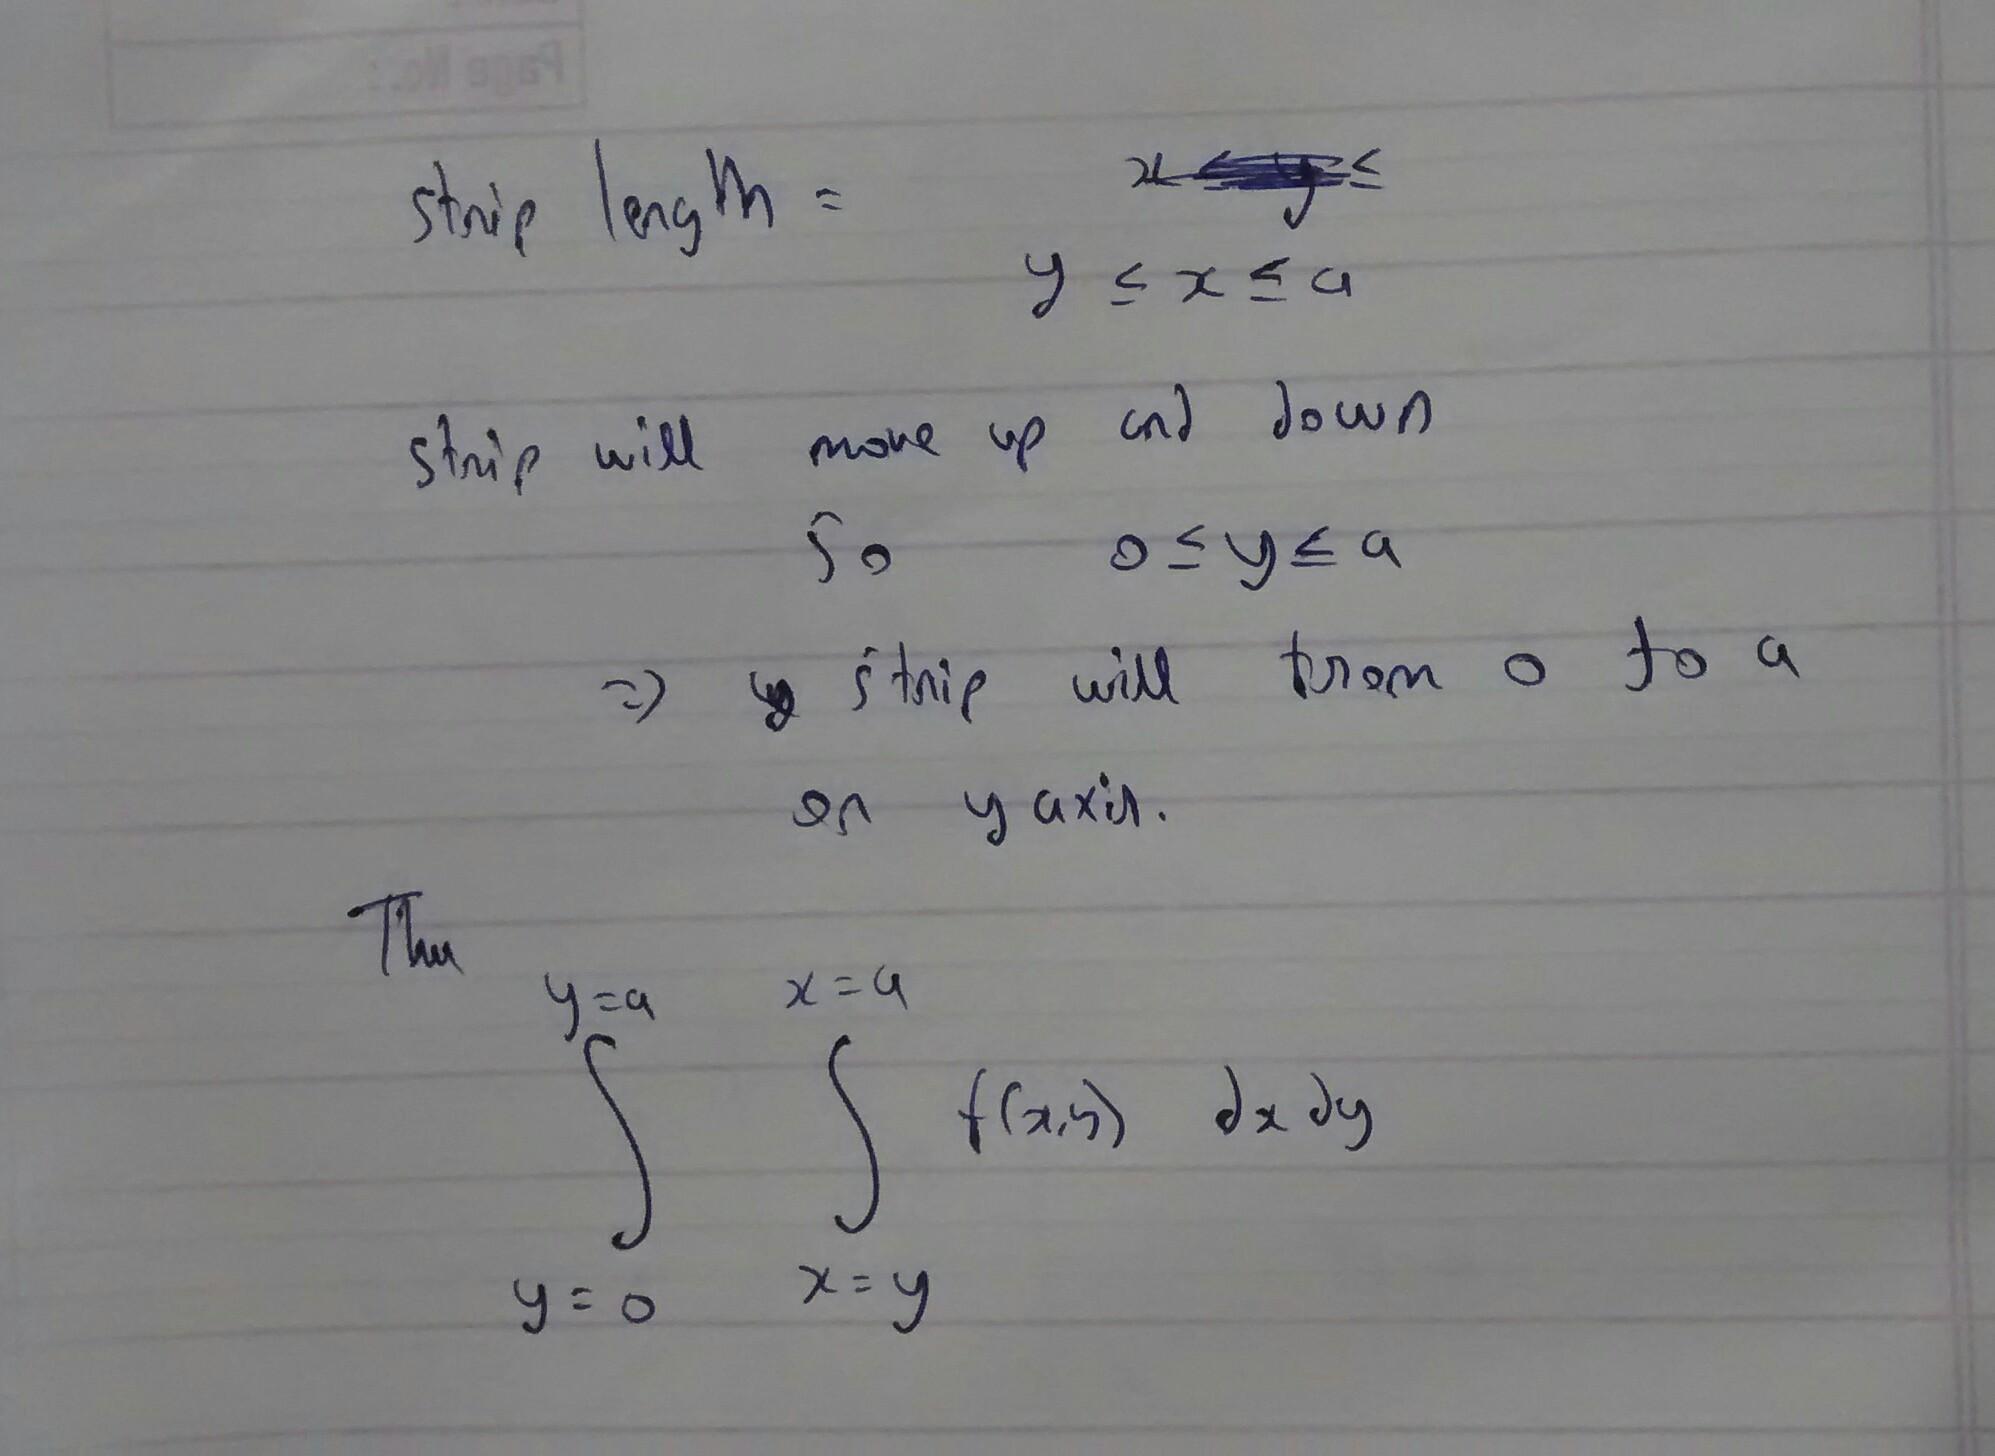 Page No.:
strip length = x ≤ y ≤
y ≤ x ≤ a
strip will move up and down
So 0 ≤ y ≤ a
=) y strip will from 0 to a
on y axis.
Thus
y=a x=a
∫ ∫ f(x,y) dx dy
y=0 x=y